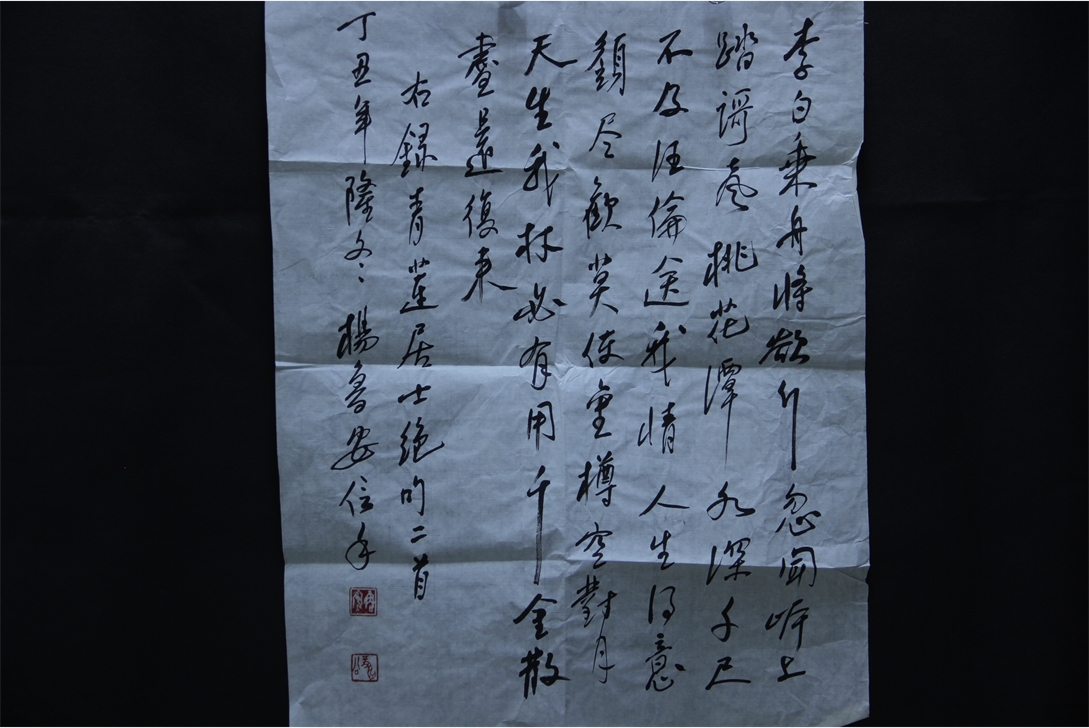 李白乘舟將欲行忽聞岸上
踏謌聲桃花潭水深千尺
不及汪倫送我情人生得意
須尽歡莫使金樽空對月
天生我材必有用千金散
盡還復來
右録青蓮居士绝句二首
丁丑年隆冬楊魯安信手